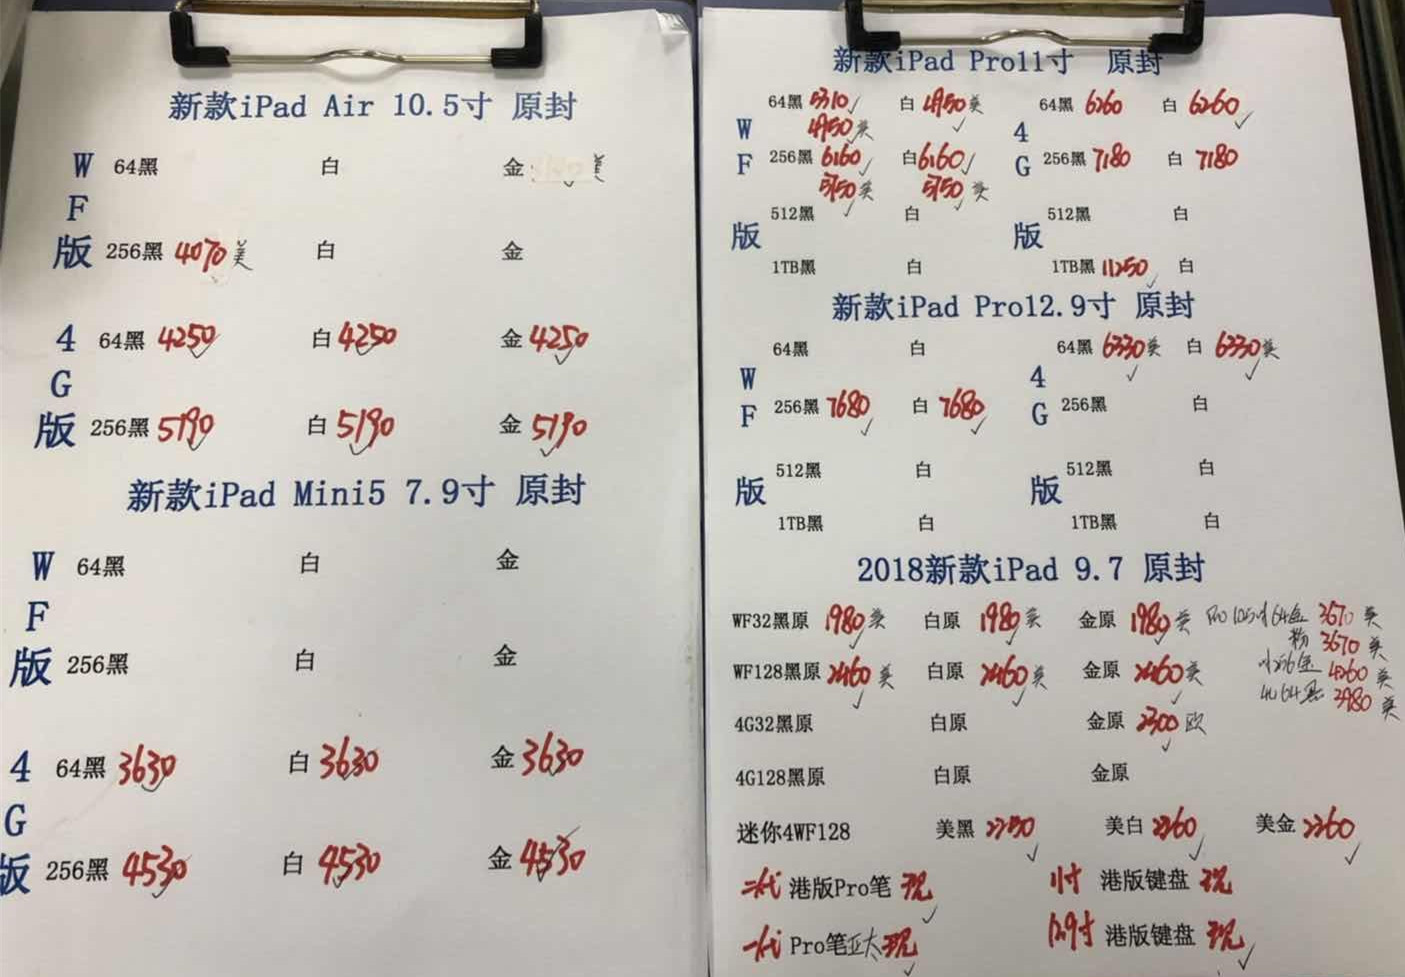 新款iPad Air 10.5寸 原封
WF版
64黑 白 金 美
256黑 4070 美 白 金
4G版
64黑 4250 白 4250 金 4250
256黑 5190 白 5190 金 5190
新款iPad Mini5 7.9寸 原封
WF版
64黑 白 金
256黑 白 金
4G版
64黑 3630 白 3630 金 3630
256黑 4530 白 4530 金 4530
新款iPad Pro11寸 原封
WF版
64黑 5310 白 4950 美
4950 美
256黑 6160 白 6160
5750 美 5750 美
512黑 白
1TB黑 白
4G版
64黑 6260 白 6260
256黑 7180 白 7180
512黑 白
1TB黑 11250 白
新款iPad Pro12.9寸 原封
WF版
64黑 白
256黑 7680 白 7680
512黑 白
1TB黑 白
4G版
64黑 6330 美 白 6330 美
256黑 白
512黑 白
1TB黑 白
2018新款iPad 9.7 原封
WF32黑原 1980 美 白原 1980 美 金原 1980 美
WF128黑原 2460 美 白原 2460 美 金原 2460 美
4G32黑原 白原 金原 2300 欧
4G128黑原 白原 金原
Pro 10.5寸 64金 3670 美
粉 3670 美
256金 4260 美
4G 64黑 3980 美
迷你4WF128 美黑 美白 2360 美金 2260
二代 港版Pro笔 现 11寸 港版键盘 现
一代 Pro笔亚太 现 12.9寸 港版键盘 现